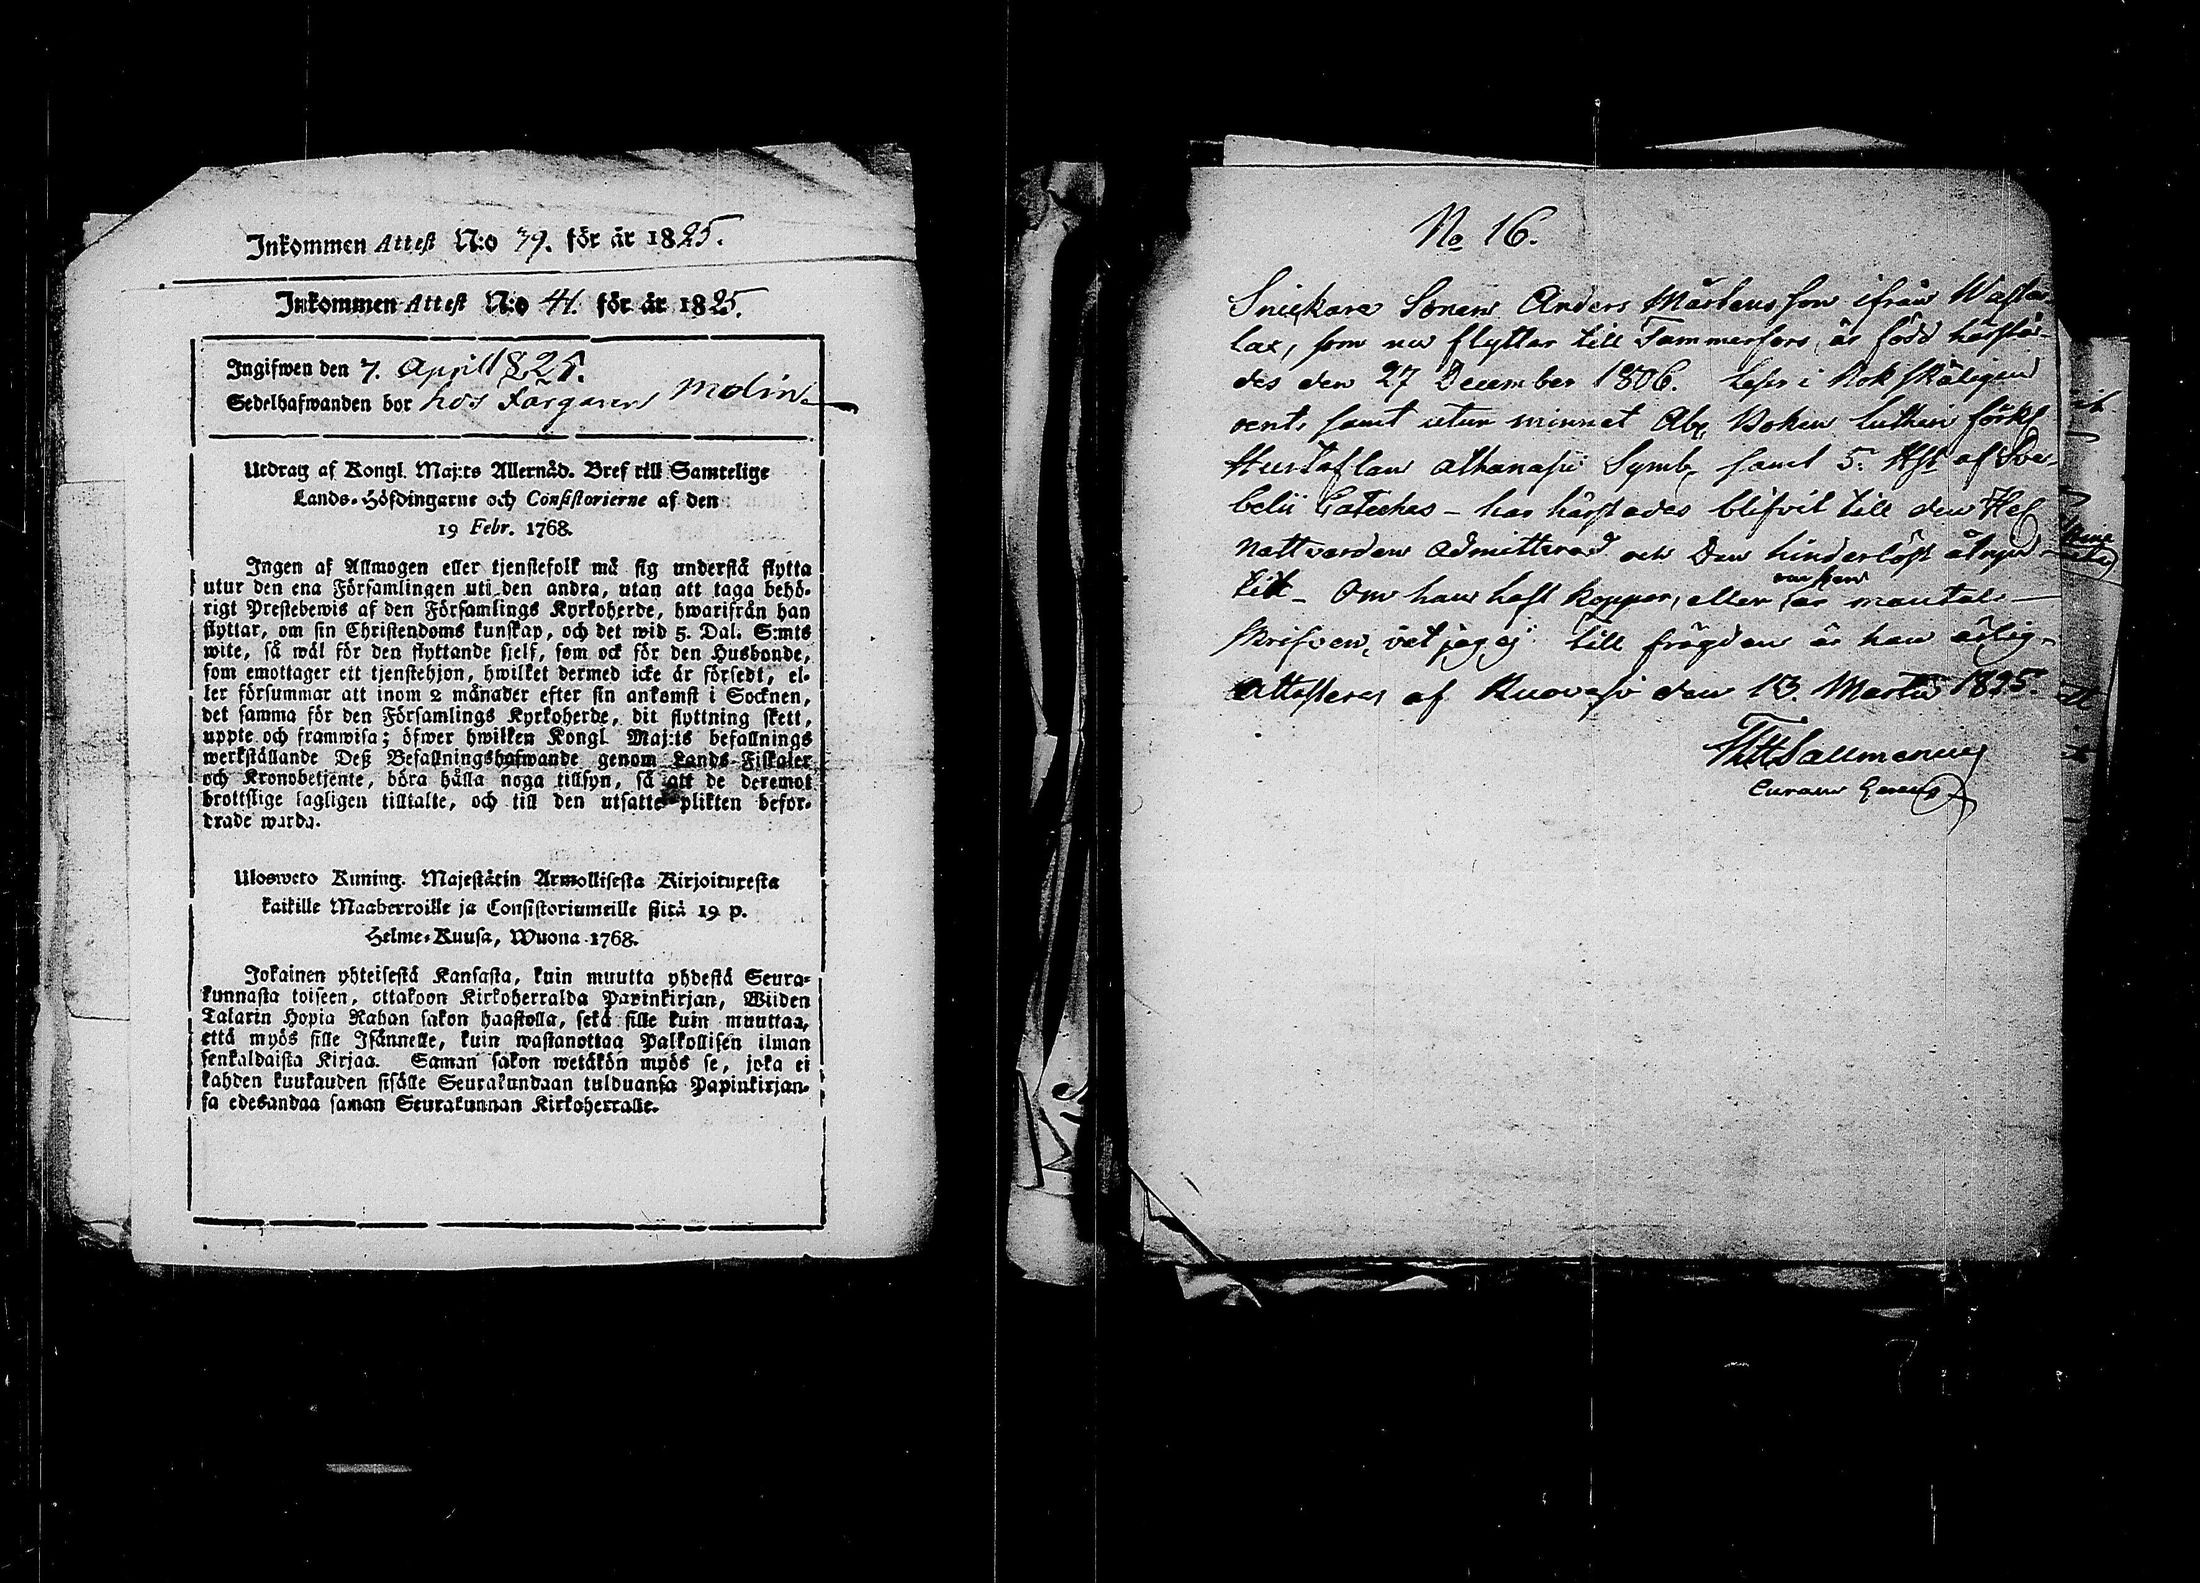 Inkommen Attest N:o 39. för år 1825.
Inkommen Attest N:o 41. för år 1825.
Ingifwen den 7. April 1825.
Sedelhafwanden bor hos Färgaren Molin
Utdrag af Kongl. Maj:ts Allernåd. Bref till Samtelige
Lands-Höfdingarne och Consistorierne af den
19 Febr. 1768.
Ingen af Allmogen eller tjenstefolk må sig understå flytta
utur den ena Församlingen uti den andra, utan att taga behö-
rigt Prestebewis af den Församlings Kyrkoherde, hwarifrån han
flyttar, om sin Christendoms kunskap, och det wid 5. Dal. S:mts
wite, så wäl för den flyttande sjelf, som ock för den Husbonde,
som emottager ett tjenstehjon, hwilket dermed icke är försedt, el-
ler försummar att inom 2 månader efter sin ankomst i Socknen,
det samma för den Församlings Kyrkoherde, dit flyttning skett,
uppte och framwisa; öfwer hwilken Kongl Maj:ts befallnings
werkställande Deß Befallningshafwande genom Lands-Fiskaler
och Kronobetjente, böra hålla noga tillsyn, så att de deremot
brottslige lagligen tilltalte, och till den utsatte plikten befor-
drade warda.
Ulosweto Kuning. Majestätin Armollisesta Kirjoituxesta
kaikille Maaherroille ja Consistoriumeille siitä 19 p.
Helme-Kuusa, Wuona 1768.
Jokainen yhteisestä Kansasta, kuin muutta yhdestä Seura-
kunnasta toiseen, ottakoon Kirkoherralda Papinkirjan, Wiiden
Talarin Hopia Rahan sakon haastolla, sekä sille kuin muuttaa,
että myös sille Isännelle, kuin wastanottaa Palkollisen ilman
senkaldaista Kirjaa. Saman sakon wetäkön myös se, joka ei
kahden kuukauden sisälle Seurakundaan tulduansa Papinkirjan-
sa edesandaa saman Seurakunnan Kirkoherralle.
No 16.
Snickare Sonen Anders Mårtensson ifrån
lax, som nu flyttar till Tammerfors, är född härstä-
des den 27 December 1806. Läser i Bok skäligen
rent, samt utur minnet Abc Boken Lutheri förkl
Hustaflan Athanasii Symb. samt 5. af Sve-
belii Cateches - har härstädes blifvit till den Hel
Nattvarden Admitterad och Den hinderlöst åtnju-
tit - Om han haft koppor, eller vaccen är mantal-
skrifven, vet jag ej till frägden är han ärlig-
Attesteras af Ruovesi den 13. Martii 1825.